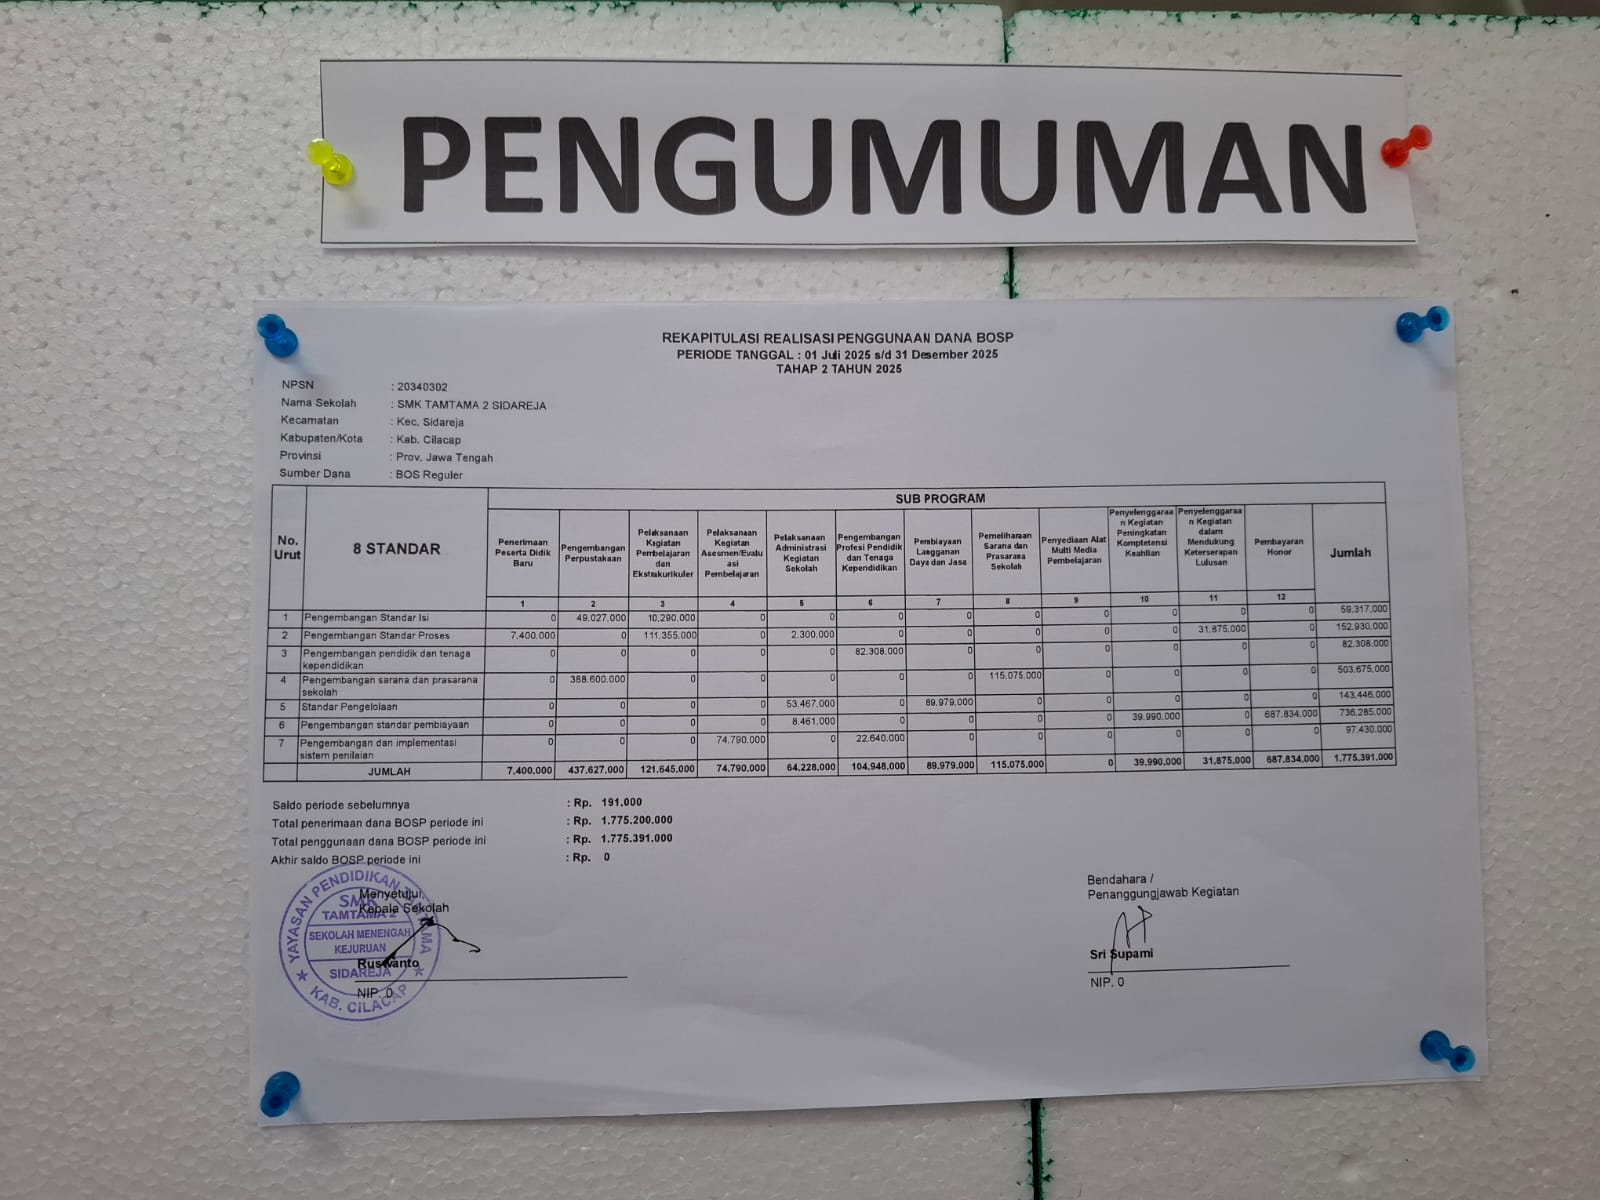 PENGUMUMAN
REKAPITULASI REALISASI PENGGUNAAN DANA BOSP
PERIODE TANGGAL : 01 Juli 2025 s/d 31 Desember 2025
TAHAP 2 TAHUN 2025
NPSN : 20340302
Nama Sekolah : SMK TAMTAMA 2 SIDAREJA
Kecamatan : Kec. Sidareja
Kabupaten/Kota : Kab. Cilacap
Provinsi : Prov. Jawa Tengah
Sumber Dana : BOS Reguler
No. Urut 8 STANDAR SUB PROGRAM Jumlah
Penerimaan Peserta Didik Baru
Pengembangan Perpustakaan
Pelaksanaan Kegiatan Pembelajaran dan Ekstrakurikuler
Pelaksanaan Kegiatan Asesmen/Evalu asi Pembelajaran
Pelaksanaan Administrasi Kegiatan Sekolah
Pengembangan Profesi Pendidik dan Tenaga Kependidikan
Pembiayaan Langganan Daya dan Jasa
Pemeliharaan Sarana dan Prasarana Sekolah
Penyediaan Alat Multi Media Pembelajaran
Penyelenggaraa n Kegiatan Peningkatan Komptetensi Keahlian
Penyelenggaraa n Kegiatan dalam Mendukung Keterserapan Lulusan
Pembayaran Honor
1 2 3 4 5 6 7 8 9 10 11 12
1 Pengembangan Standar Isi 0 49.027.000 10.290.000 0 0 0 0 0 0 0 0 0 59.317.000
2 Pengembangan Standar Proses 7.400.000 0 111.355.000 0 2.300.000 0 0 0 0 0 31.875.000 0 152.930.000
3 Pengembangan pendidik dan tenaga kependidikan 0 0 0 0 0 82.308.000 0 0 0 0 0 0 82.308.000
4 Pengembangan sarana dan prasarana sekolah 0 388.600.000 0 0 0 0 0 115.075.000 0 0 0 0 503.675.000
5 Standar Pengelolaan 0 0 0 0 53.467.000 0 89.979.000 0 0 0 0 0 143.446.000
6 Pengembangan standar pembiayaan 0 0 0 0 8.461.000 0 0 0 0 39.990.000 0 687.834.000 736.285.000
7 Pengembangan dan implementasi sistem penilaian 0 0 0 74.790.000 0 22.640.000 0 0 0 0 0 0 97.430.000
JUMLAH 7.400.000 437.627.000 121.645.000 74.790.000 64.228.000 104.948.000 89.979.000 115.075.000 0 39.990.000 31.875.000 687.834.000 1.775.391.000
Saldo periode sebelumnya : Rp. 191.000
Total penerimaan dana BOSP periode ini : Rp. 1.775.200.000
Total penggunaan dana BOSP periode ini : Rp. 1.775.391.000
Akhir saldo BOSP periode ini : Rp. 0
Menyetujui,
Kepala Sekolah
Ruswanto
NIP. 0
YAYASAN PENDIDIKAN TAMTAMA
SMK
TAMTAMA 2
SEKOLAH MENENGAH
KEJURUAN
SIDAREJA
KAB. CILACAP
Bendahara /
Penanggungjawab Kegiatan
Sri Suparni
NIP. 0